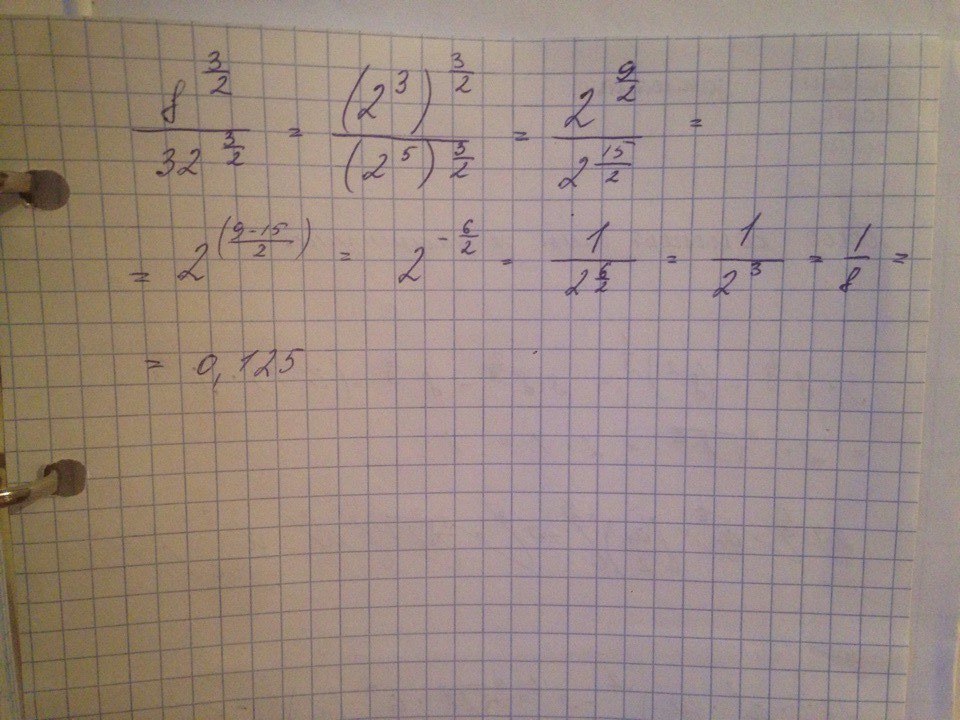 8^(3/2) / 32^(3/2) = (2^3)^(3/2) / (2^5)^(3/2) = 2^(9/2) / 2^(15/2) =
= 2^((9-15)/2) = 2^(-6/2) = 1 / 2^(6/2) = 1 / 2^3 = 1/8 =
= 0,125